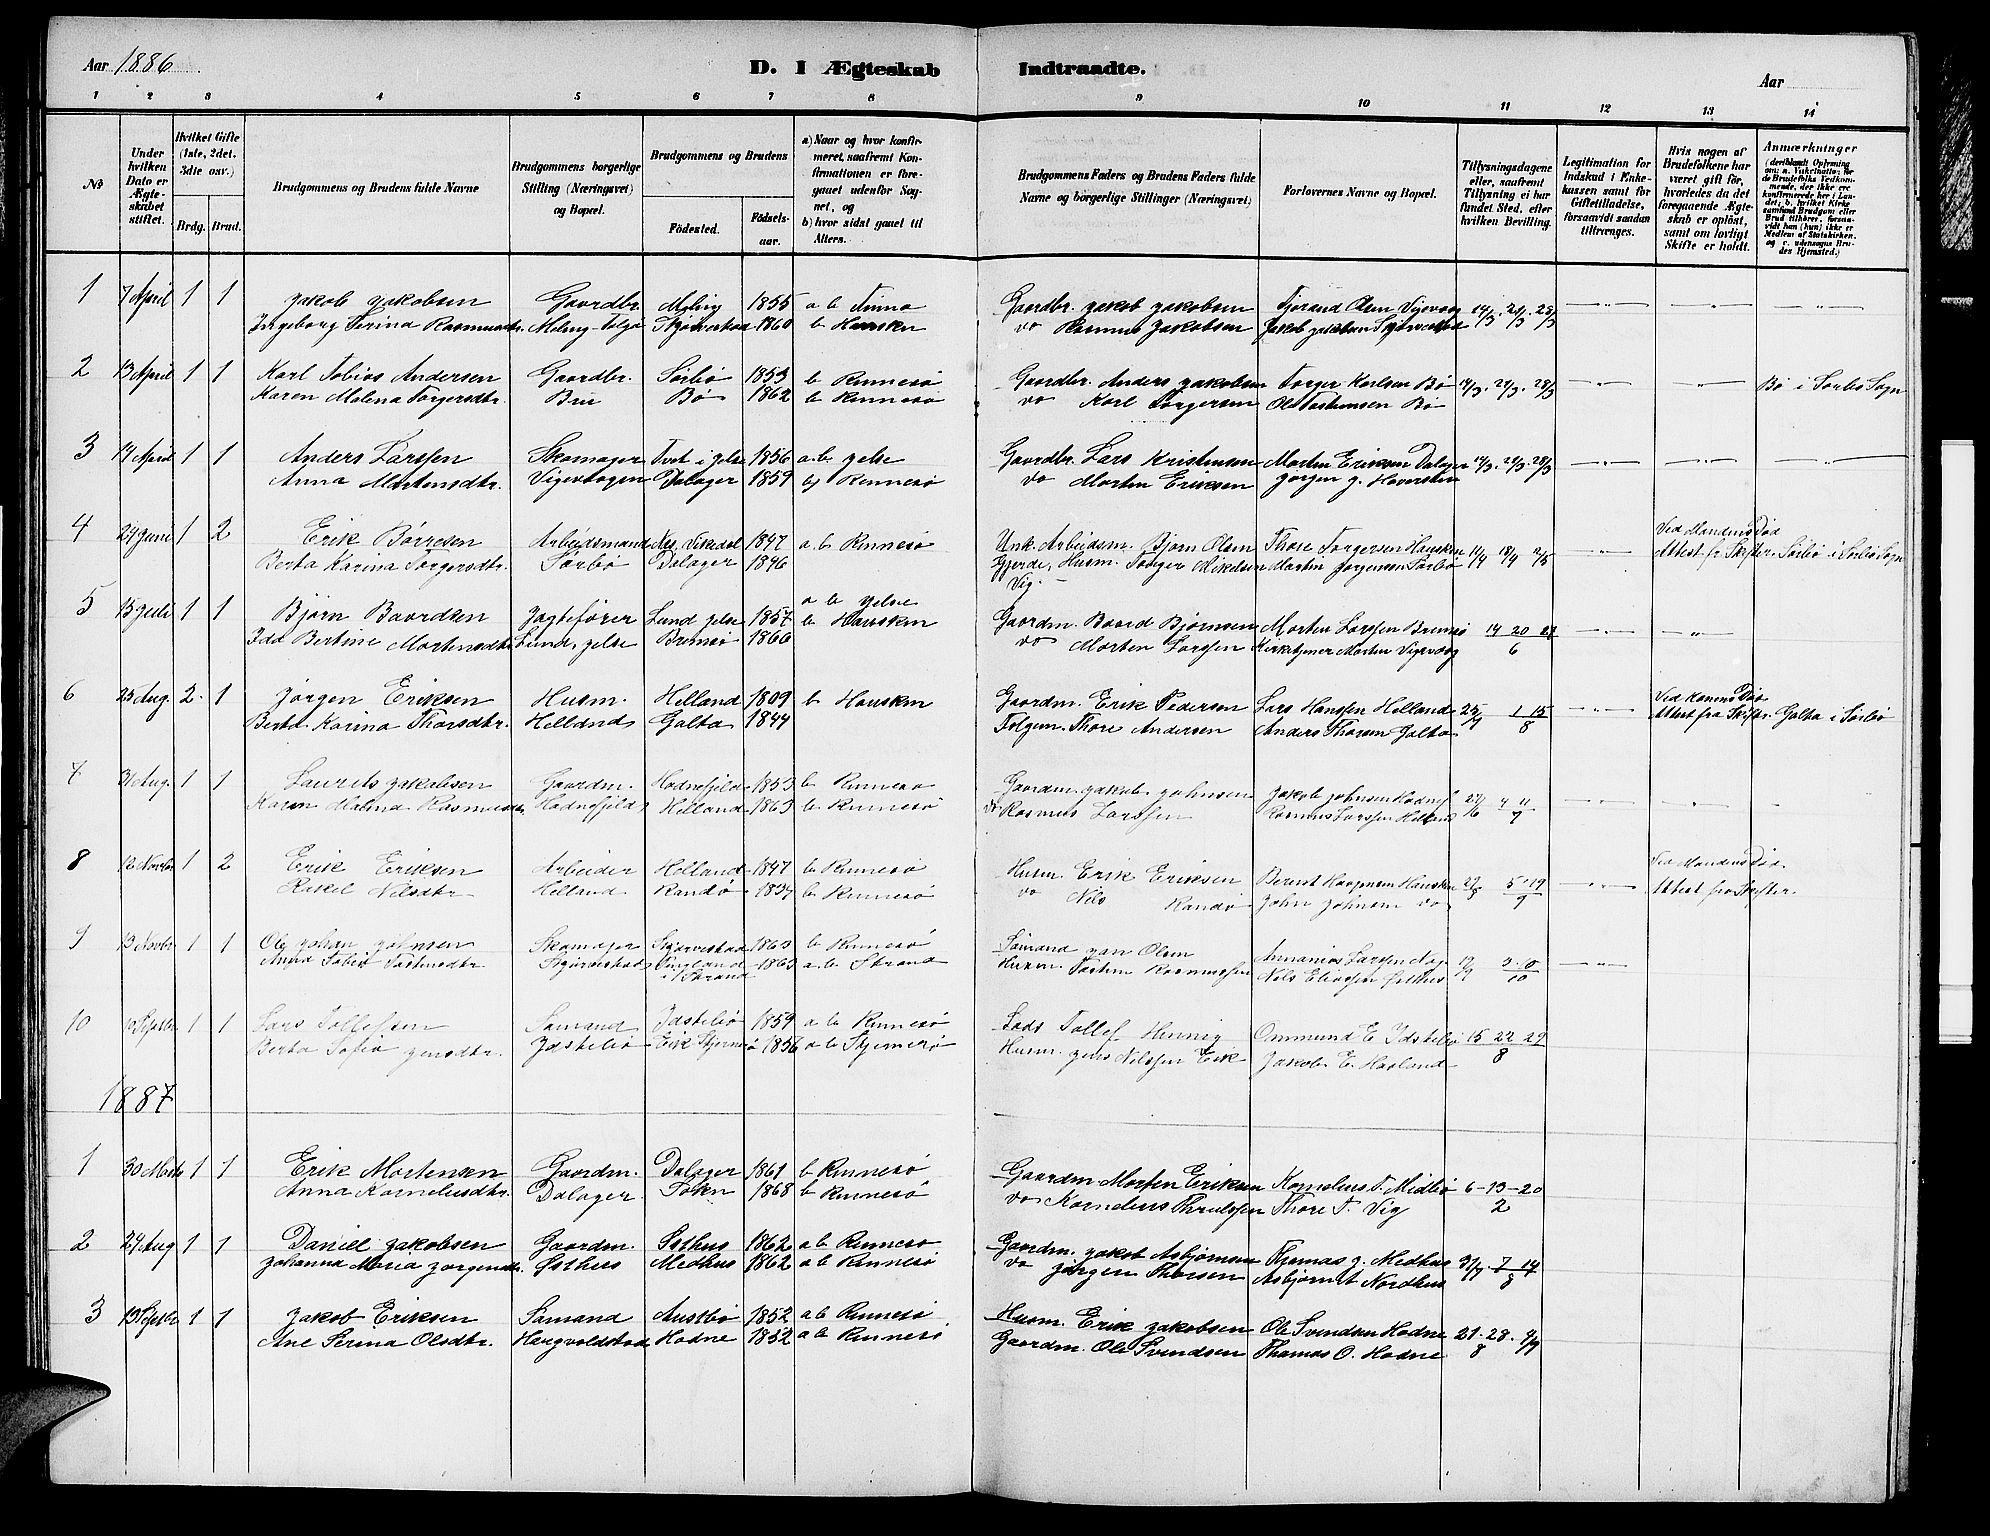 Aar 1886
D. I Ægteskab Indtraadte.
Aar
1 2 3 4 5 6 7 8 9 10 11 12 13 14
No
Under hvilken Dato er Ægteskabet stiftet.
Hvilket Gifte (1ste, 2det, 3die osv.)
Brdg. Brud.
Brudgommens og Brudens fulde Navne
Brudgommens borgerlige Stilling (Næringsvei) og Bopæl.
Brudgommens og Brudens
Födested. Födsels-aar.
a) Naar og hvor konfirmeret, saafremt Konfirmationen er foregaaet udenfor Sognet, og
b) hvor sidst gaaet til Alters.
Brudgommens Faders og Brudens Faders fulde Navne og borgerlige Stillinger (Næringsvei)
Forlovernes Navne og Bopæl.
Tillysningsdagene eller, saafremt Tillysning ei har fundet Sted, efter hvilken Bevilling.
Legitimation for Indskud i Enkekassen samt for Giftetilladelse, forsaavidt saadan tiltrænges.
Hvis nogen af Brudefolkene har været gift för, hvorledes da det foregaaende Ægteskab er oplöst, samt om lovligt Skifte er holdt.
Anmærkninger
1 7 April 1 1 Jakob Jakobsen Gaardbr. Meling 1855 a b Finnø Gaardbr. Jakob Jakobsen Tjerand Olsen Vigevaag 14/3. 21/3. 28/3
Ingeborg Serina Rasmusdtr. Meling Talgø Skjørvestad 1860 b Hausken do Rasmus Jakobsen Jakob Jakobsen Skjørvestad
2 13 April 1 1 Karl Tobias Andersen Gaardbr. Sørbø 1853 b Rennesø Gaardbr. Anders Jakobsen Torger Karlsen Bø 14/3. 21/3. 28/3 Bø i Sørbø Sogn
Karen Malena Torgersdtr. Bru Bø 1862 b Rennesø do Karl Torgersen Ole Tostensen Bø
3 14 April 1 1 Anders Larssen Skomager Tvet i Jelse 1856 a.b Jelse Gaardbr. Lars Kristensen Morten Eriksen Dalager 14/3. 21/3. 28/3
Anna Mortensdtr. Vigevaagen Dalager 1859 b Rennesø do Morten Eriksen Jørgen J. Haversten
4 24 Juni 1 2 Erik Børresen Arbeidsmand Nes, Vikedal 1847 a. b Rennesø Unk. Arbeidsm. Bjørn Olsen Thore Torgersen Hausken 11/4 18/4 2/5 Ved Mandens Død
Berta Karina Torgersdtr. Sørbø Dalager 1846 Gjerde, Husm. Torger Mikelsen Martin Jørgensen Sørbø Attest fr Skifter. Sørbø i Sørbø Sogn
Vig.
5 15 Juli 1 1 Bjørn Baardsen Jagtefører Lund Jelse 1857 a b Jelse Gaardm. Baard Bjørnsen Morten Larssen Brimsø 14 20 27
Ida Bertine Mortensdtr. Lund, Jelse Brimsø 1860 b Hausken do Morten Larssen Kirketjener Morten Vigevaag 6
6 25 Aug. 2 1 Jørgen Eriksen Husm. Helland 1809 b Hausken Gaardm. Erik Pedersen Lars Hanssen Helland 25/7 1 15 Ved Konens Død
Berta Karina Thorsdtr. Helland Galta 1844 Folgem. Thore Andersen Anders Thorsen Galta 8 Attest fra Skifter. Galta i Sørbø
7 31 Aug. 1 1 Laurits Jakobsen Gaardm. Hodnefjeld 1853 b Rennesø Gaardm. Jakob Johnsen Jakob Johnsen Hodnef. 27/6 4 11
Karen Malena Rasmusdtr. Hodnefjeld Helland 1863 b Rennesø do Rasmus Larssen Rasmus Larssen Helland 7
8 12 Novbr 1 2 Erik Eriksen Arbeider Helland 1847 b Rennesø Husm. Erik Eriksen Berent Knapmann Hausken 29/8 5 19 Ved Mandens Død.
Rakel Nilsdtr Helland Randø 1834 b Rennesø do Nils Randø John Johnsen do 9 Attest fra Skifter.
9 13 Novbr 1 1 Ole Johan Johnsen Skomager Skjørvestad 1863 b Rennesø Sømand Jan Olsen Annanias Larssen Nag 12/9 3. 10
Anna Tobia Tostensdtr Skjørvestad Tungland i Strand 1863 a. b Strand Husm Tosten Rasmussen Nils Eliassen Østhus 10
10 Septbr 1 1 Lars Tollefsen Sømand Idstebø 1859 a b Rennesø Lods Tollef Henrig Ommund E Idstebø 15 22 29
Berta Sofia Jensdtr. Idstebø Eik Skjernø 1856 a b Stjernerø Husm. Jens Nilssen Eik Jakob E. Hasland 8
1887
1 30 Marts 1 1 Erik Mortensen Gaardm. Dalager 1861 b Rennesø Gaardm Morten Eriksen Kornelius T. Midbø 6-13-20
Anna Korneliusdtr. Dalager Tøkn 1868 b Rennesø do Kornelius Thrulssen Thore T. Vig 2
2 24 Aug 1 1 Daniel Jakobsen Gaardm. Østhus 1862 a b Rennesø Gaardm. Jakob Asbjørnsen Thomas J. Medhus 31/7 7 14
Johanna Maria Jørgensdtr. Østhus Medhus 1862 a b Rennesø do Jørgen Thorsen Asbjørn A Nordhus 8
3 13 Septbr 1 1 Jakob Eriksen Sømand Austbø 1852 a b Rennesø Husm. Erik Jakobsen Ole Svendsen Hodne 21. 28. 4/9
Ane Serina Olsdtr. Hægvoldstad Hodne 1852 a b Rennesø Gaardm. Ole Svendsen Thomas O. Hodne 8